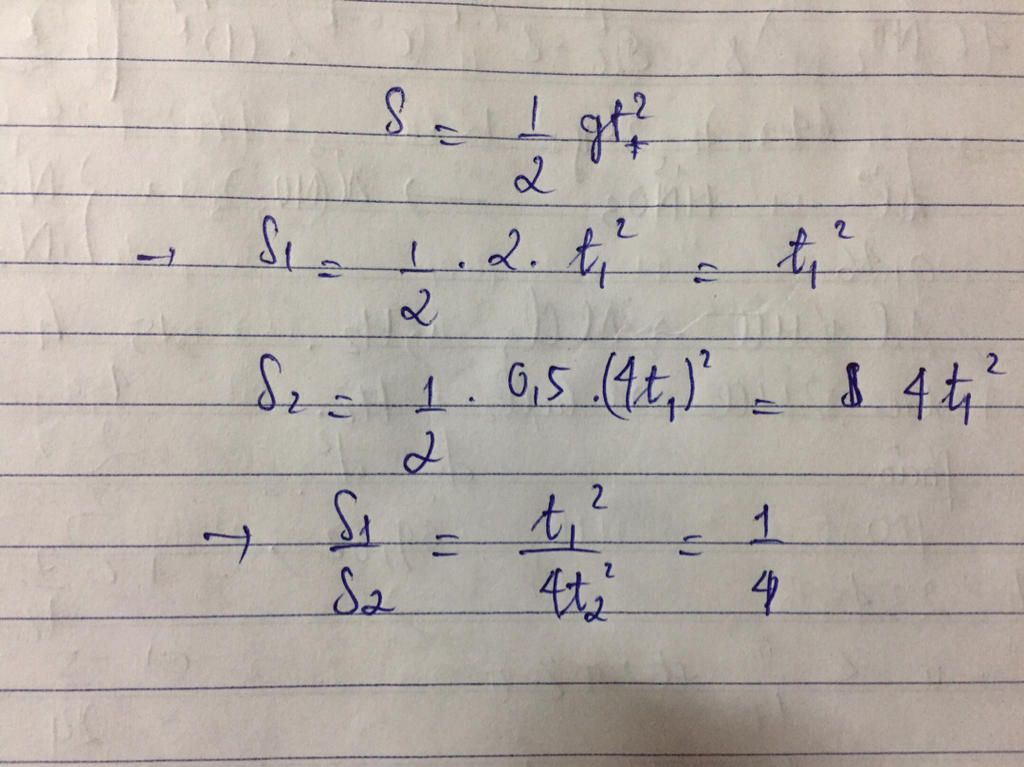 S = 1/2 gt²
→ S₁ = 1/2 . 2 . t₁² = t₁²
S₂ = 1/2 . 0,5 . (4t₁)² = 4t₁²
→ S₁/S₂ = t₁²/4t₂² = 1/4